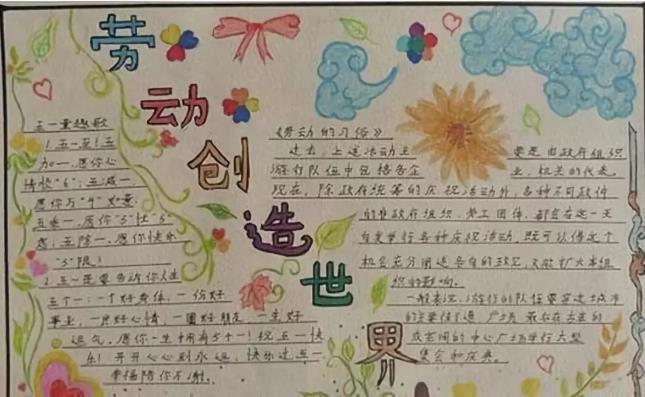 劳
动
创
造
世
界
五一童趣歌
1.五一花!五
加一,愿你心
情快"6";五减一
愿你万"4"如意
五乘一,愿你"5"忧"5"
虑;五除一,愿你快乐
"5"限!
2.五一是要告诉你人生
五个一:一个好身体,一份好
事业,一片好心情,一圈好朋友,一生好
运气,愿你一生拥有5个一!祝五一快
乐!开开心心到永远,快乐过五一
幸福陪你不谢。
《劳动的习俗》
过去,上述活动主 要是由政府组织
游行队伍中包括各企 业,机关的代表。
现在,除政府统筹的庆祝活动外,各种不同政件
的非政府组织,劳工团体,都会在这一天
自发举行各种庆祝活动,既可以借这个
机会充分阐述各自的政见,又能扩大本组
织的影响。
一般来说,游行的队伍要穿过城市
的主要街道,广场,最后在古老的
或空阔的中心广场举行大型
集会和庆典。